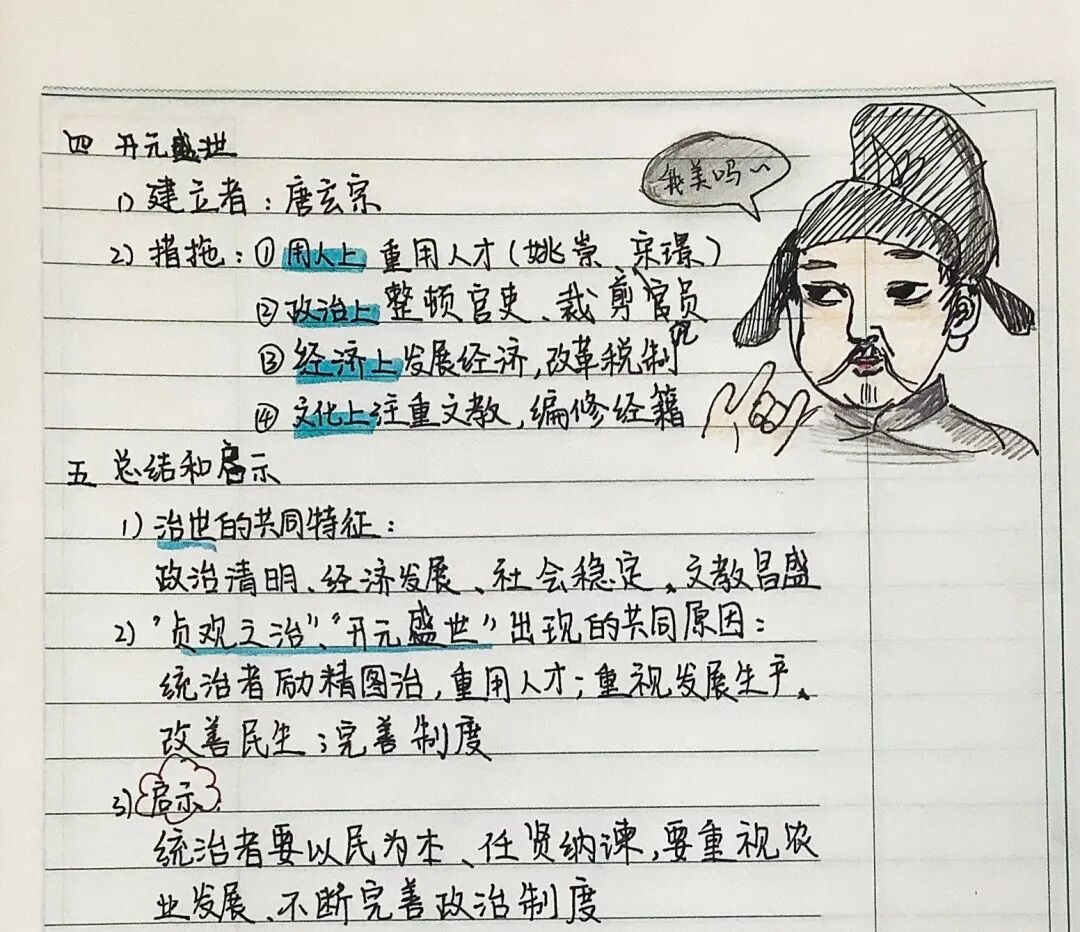 四 开元盛世
我美吗~
1) 建立者：唐玄宗
2) 措拖：① 用人上 重用人才(姚崇 宋璟)
② 政治上 整顿官吏、裁剪官员
③ 经济上发展经济，改革税制
④ 文化上注重文教，编修经籍
五 总结和启示
1) 治世的共同特征：
政治清明、经济发展、社会稳定、文教昌盛
2) "贞观之治"、"开元盛世"出现的共同原因：
统治者励精图治，重用人才；重视发展生产、
改善民生；完善制度
3) 启示：
统治者要以民为本、任贤纳谏，要重视农
业发展、不断完善政治制度